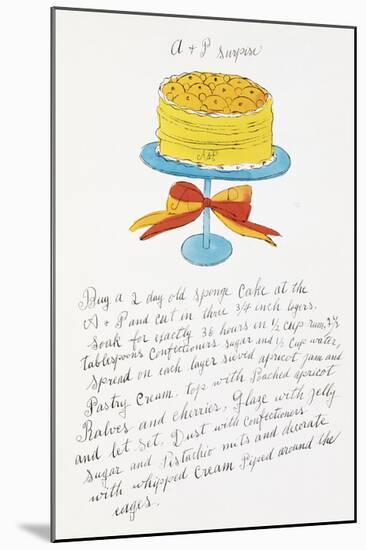 A + P surpise
A&P
Buy a 2 day old sponge cake at the
A + P and cut in three 3/4 inch layers.
Soak for exactly 36 hours in 1/2 cup rum,
tablespoons confectioners sugar and 1/3 cup water,
spread on each layer sieved apricot jam and
Pastry Cream. top with Poached apricot
Halves and cherries, Glaze with jelly
and let set. Dust with confectioners
sugar and Pistachio nuts and decorate
with whipped cream Piped around the
edges.